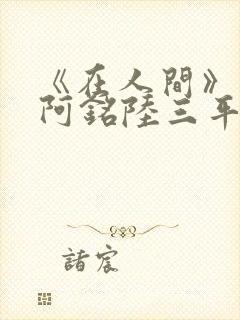 《在人間》
阿銘陸三
諸宸